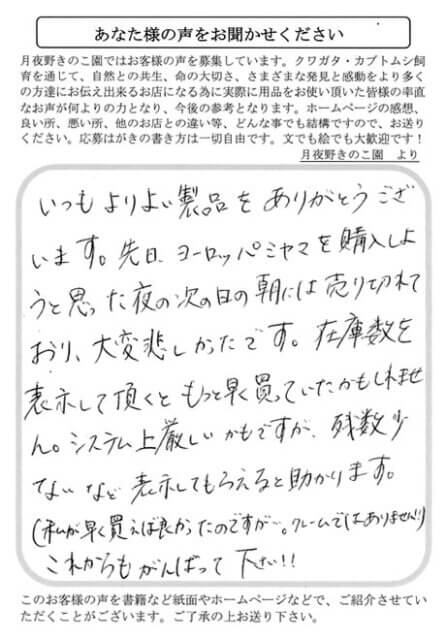 あなた様の声をお聞かせください
月夜野きのこ園ではお客様の声を募集しています。クワガタ・カブトムシ飼
育を通じて、自然との共生、命の大切さ、さまざまな発見と感動をより多く
の方達にお伝え出来るお店になる為に実際に用品をお使い頂いた皆様の率直
なお声が何よりの力となり、今後の参考となります。ホームページの感想、
良い所、悪い所、他のお店との違い等、どんな事でも結構ですので、お送り
ください。応募はがきの書き方は一切自由です。文でも絵でも大歓迎です！
月夜野きのこ園　より
いつもよりよい製品をありがとうござ
います。先日、ヨーロッパミヤマを購入しよ
うと思った夜の次の日の朝には売り切れて
おり、大変悲しかったです。在庫数を
表示して頂くともっと早く買っていたかもしれませ
ん。システム上厳しいかもですが、残数少
ないなど表示してもらえると助かります。
(私が早く買えば良かったのですが…。クレームではありません!!)
これからもがんばって下さい!!
このお客様の声を書籍など紙面やホームページなどで、ご紹介させてい
ただくことがございます。ご了承の上お送り下さい。